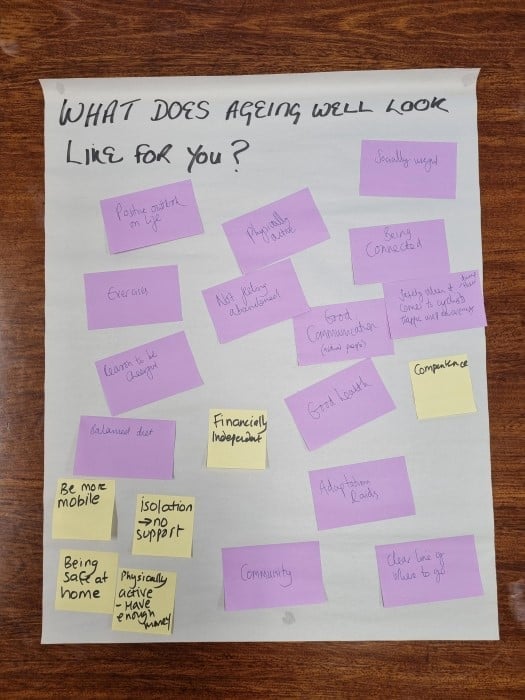 WHAT DOES AGEING WELL LOOK
LIKE FOR YOU?
Socially
Positive outlook
on life
Physically
active
Being
Connected
Exercise
Not feeling
abandoned
Good
Communication
Safety when it
come to cyclists
traffic
Reason to be
Compentence
Good health
Balanced diet
Financially
Independent
Adaptation
/aids
Be more
mobile
isolation
→ no
support
Being
safe at
home
Physically
active
- Have
enough
money
Community
Clear line of
where to go